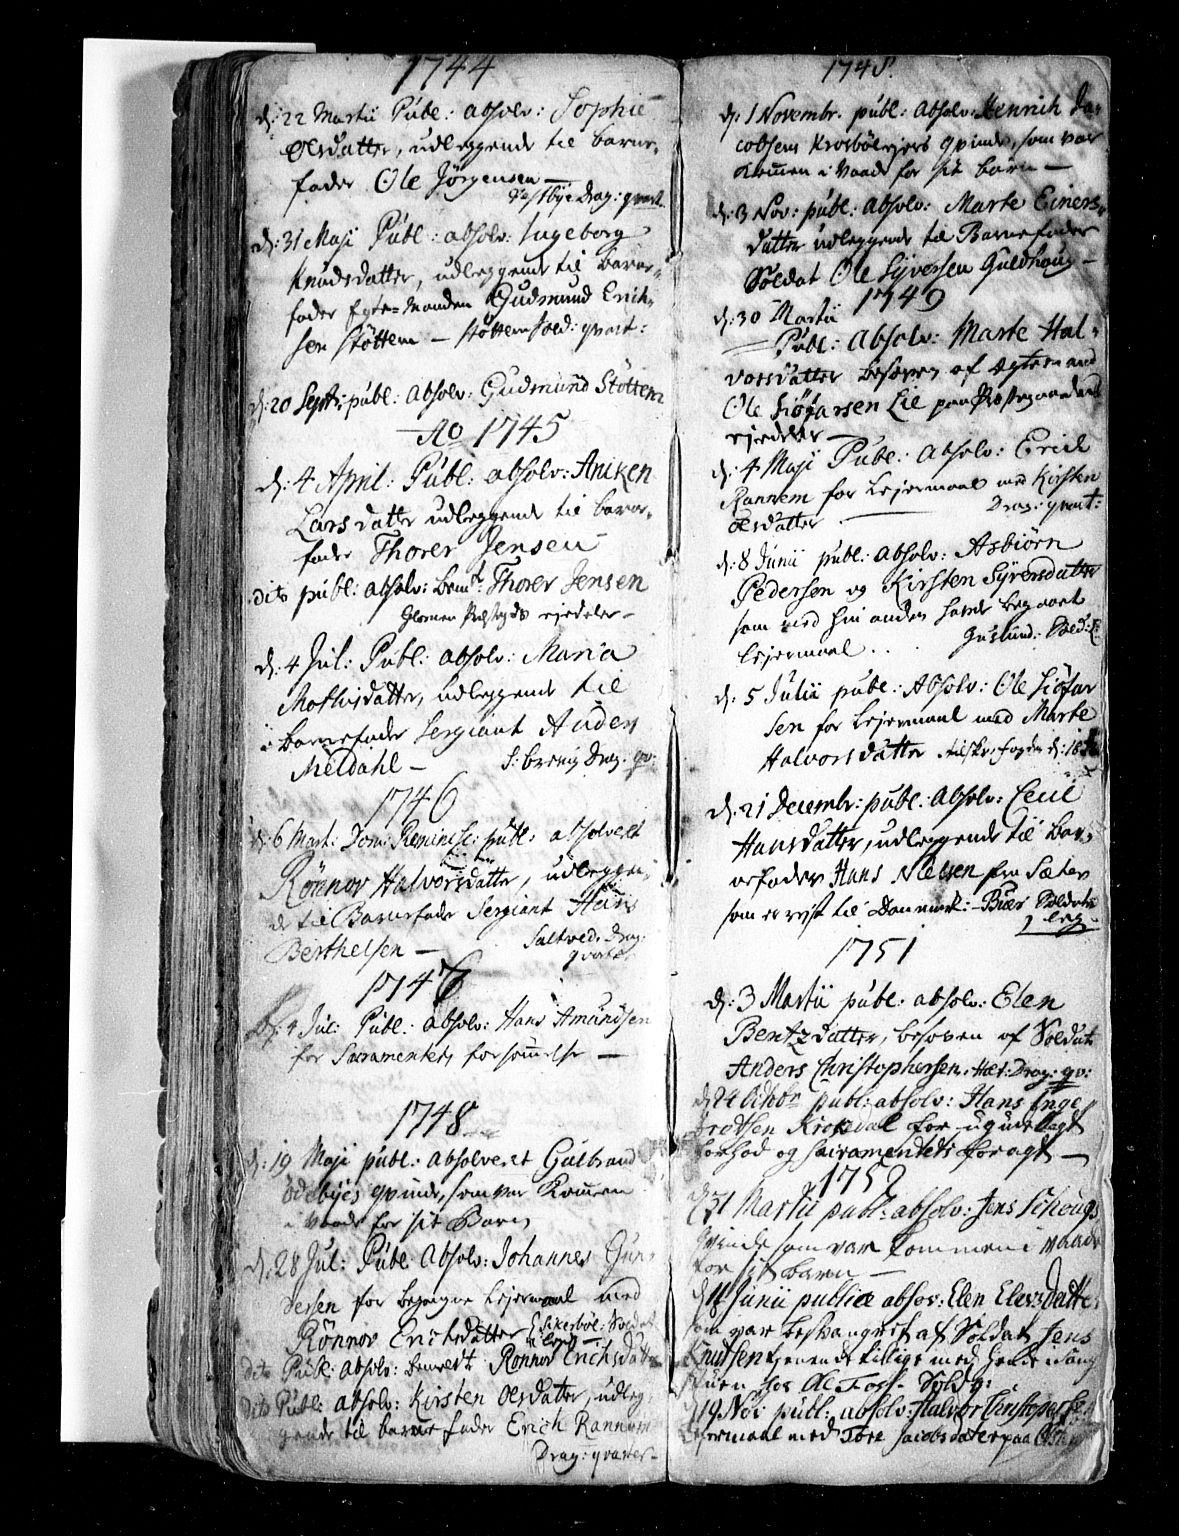 1744
d: 22 Martii Publ: absolv: Sophie
Olsdatter, udleggende til barne-
fader Ole Jörgensen —
Vestbye Drag: qvart.
d: 31 Maji Publ: absolv: Ingeborg
Knudsdatter, udleggende til barne-
fader Egte-Manden Gudmund Erich-
sen Støttem — Støttem Sold: qvart:
d: 20 Sept: publ: absolv: Gudmund Støttem
Ao 1745
d: 4 April: Publ: absolv: Aniken
Larsdatter udleggende til barne-
fader Thorer Jensen
dito publ: absolv: bemt: Thorer Jensen
ejedeler —
d: 4 Jul: Publ: absolv: Maria
Mathisdatter, udleggende til
barnefader Sergiant Anders
Meldahl — Drag: qv:
1746
d: 6 Mart: Dom: Reminisc: publ: absolveret
Rönnov Halvorsdatter, udleggen-
de til Barnefader Sergiant
Berthelsen — Saltved. Drag:
qvarter
1747
d: 4 Jul: Publ: absolv: Hans Amundsen
for Sacramentets forsømmelse —
1748
d: 19 Maji publ: absolveret Gulbrand
Ödebyes qvinde, som var kommen
i vaade for sit Barn
d: 28 Jul: Publ: Absolv: Johannes Gun-
dersen for begangne Lejermaal med
Rönnov Erichsdatter
dito Publ: Absolv: bemeldte Rönnov Erichsdatter
dito Publ: absolv: Kirsten Olsdatter, udleg-
gende til barne fader Erich Rannem
Drag: qvarter —
1748.
d: 1 Novembr. publ: Absolv: Henrich Ja-
cobsens Krosbölejers qvinde, som var
kommen i Vaade for sit barn —
d: 3 Nov: publ: absolv: Marte Einers-
datter udleggende til Barnefader
Soldat Ole Syversen Guldhoug —
1749
d: 30 Martii
Publ: Absolv: Marte Hal-
vorsdatter besoven af Ægtemand
Ole Siøfarsen Lie paa Præstegaardens
ejedeler —
d: 4 Maji Publ: Absolv: Erich
Rannem for Lejermaal med Kirsten
Olsdatter — Drag: qvart:
d: 8 Junii publ: Absolv: Asbiörn
Pedersen og Kirsten Syversdatter
som med hin anden havde begaaet
Lejermaal . . Guslund: Sold:
d: 5 Julii publ: Absolv: Ole Siøfar
sen for Lejermaal med Marte
Halvorsdatter
d: 21 Decembr: publ: Absolv: Cecil
Hansdatter, udleggende til bar-
nefader Hans Nielsen fra Sæter
som er reyst til Danmark: Buer Soldate
leg
1751
d: 3 Martii publ: absolv: Elen
Bentzdatter, besoven af Soldat
Anders Christophersen. Drag: qv:
d: 24 Octobr publ: absolv: Hans Inge
brotsen Krokedal for ugudeligt
forhod og Sacramentets foragt —
1752
d 31 Martii publ: absolv: Jens Schougs
qvinde som var kommen i vaade
for sit barn —
d 11 Junii publice absov: Elen Elersdatter
som var besvangret af Soldat Jens
Knudsen tienende tillige med hende i
hos Ole Foss. Sold q:
d 19 Nov: publ: absolv: Halvor Christophersen
Lejermaal med Tore Jacobsdatter paa